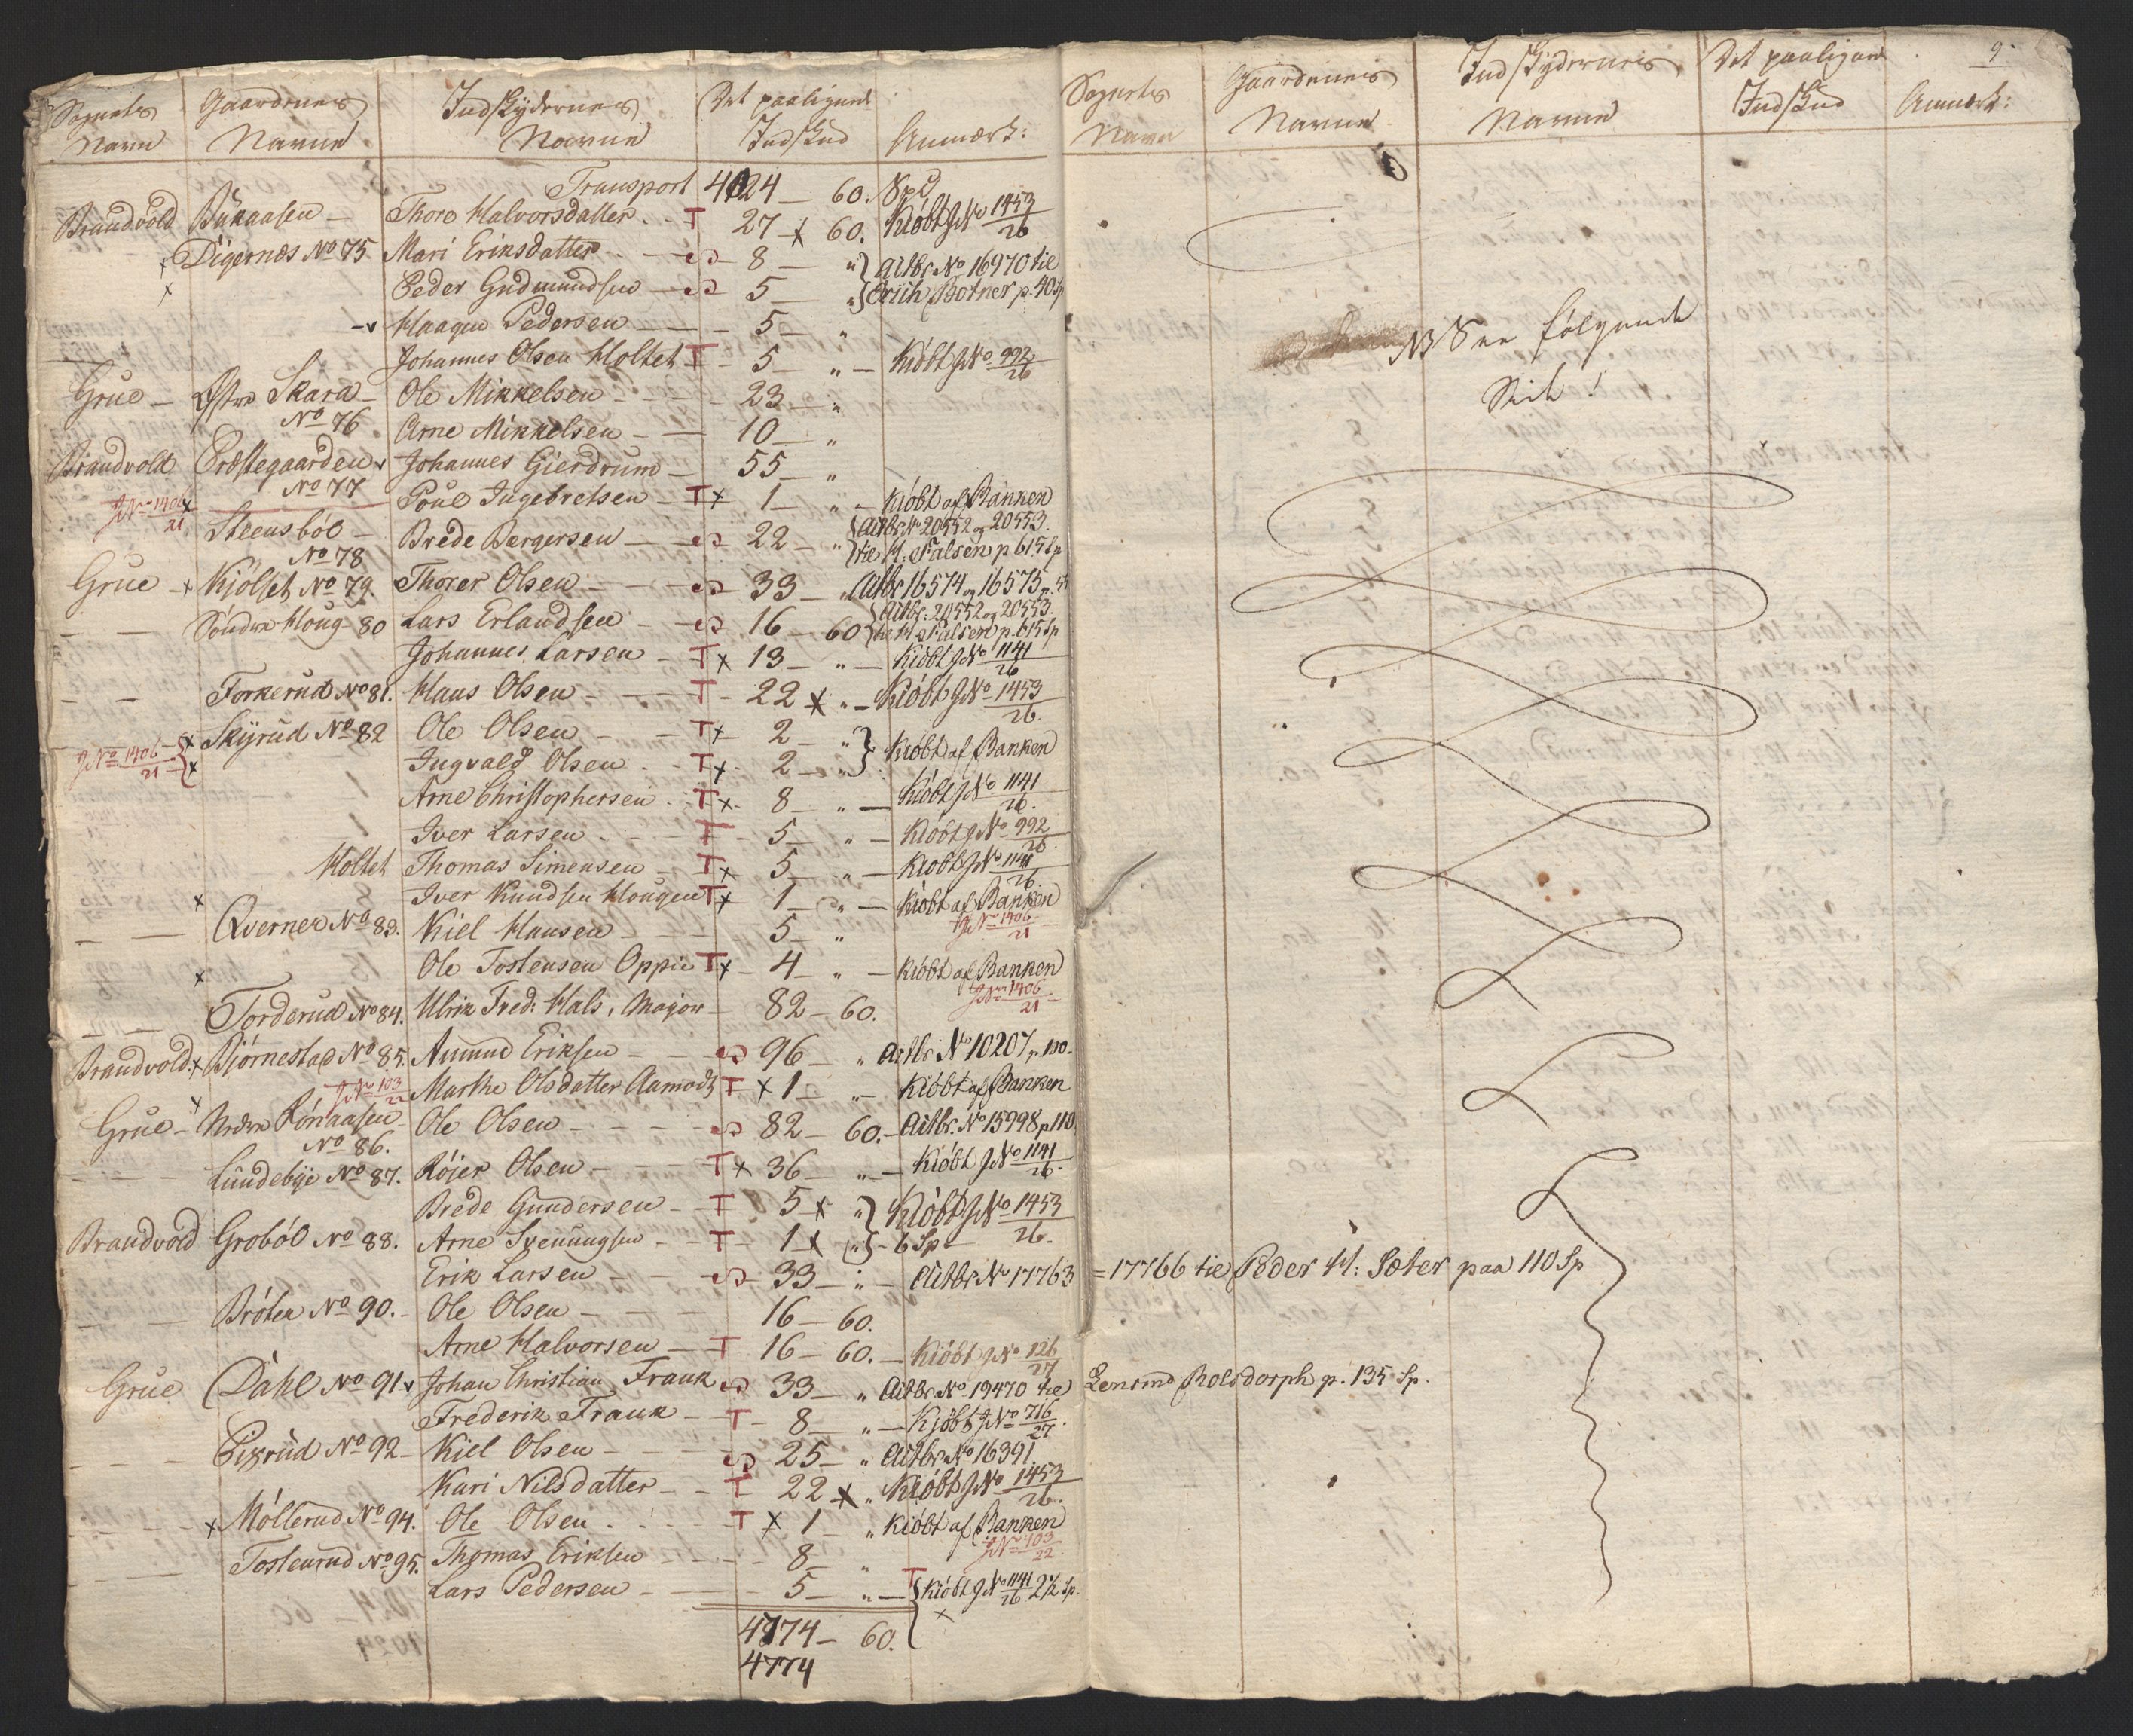 Sognets Gaardenes Indskydernes Det paaligende
Navn Navne Navne Indskud Anmærk:
Transport 4024 — 60. Spd
Brandvold Bükaasen — Thore Halvorsdatter — T 27 — x 60. Kiöbt JNo 1453/26
x Digernæs No 75 Mari Eriksdatter — 8 — " } Actbr. No 16970 til
x Peder Gudmundsen — 5 — " } Erich Botner p. 40 Sp
Haagen Pedersen — 5 — "
Johannes Olsen Holtet T — 5 — " — Kiöbt JNo 992/26
Grue — Østre Skara — Ole Mikkelsen — 23 — "
No 76 Arne Mikkelsen — 10 — "
Brandvold Præstegaarden Johannes Gierdrum — 55 — "
No 77
JNo 1406/21 x Poul Ingebretsen — T x 1 — " — Kiöbt af Banken
Steensböl — Brede Bergersen — 22 — " { Actbr. No 20552 og 20553.
No 78 til H. Falsen p 615 Sp
Grue — x Kjölset No 79. Thorer Olsen — 33 — " Actbr 16574 og 16575
— — Söndre Houg 80 Lars Erlandsen — 16 — 60 { Actbr: 20552 og 20553.
til H. Falsen p. 615 Sp
Johannes Larsen — T x 13 — " — Kiöbt JNo 1141/26
— — Torkerud No 81. Hans Olsen — T — 22 x " — Kiöbt JNo 1453/26.
JNo 1406/21 { x Skÿrud No 82 Ole Olsen — T x 2 — " } Kiöbt af Banken
x Ingvald Olsen — T x 2 — " }
Arne Christophersen — T x 8 — " — Kiöbt JNo 1141/26.
Iver Larsen — T — 5 — " — Kiöbt JNo 992/26.
Holtet Thomas Simensen — T x 5 — " — Kiöbt JNo 1141/26.
x Iver Knudsen Hougen T x 1 — " — Kiöbt af Banken
JNo 1406/21
— — Qverner No 83. Kiel Hansen — 5 — "
x Ole Tostensen Oppie T x 4 — " — Kiöbt af Banken
JNo 1406/21
— — Torderud No 84. Ulrik Fred: Hals, Major — 82 — 60.
Brandvold x Björnestad No 85. Amund Eriksen — 96 — " Actbr. No 10207 p. 130.
JNo 103/22 Marthe Olsdatter Aamodt T x 1 — " — Kiöbt af Banken
Grue — Nedre Rönaasen — Ole Olsen — 82 — 60. — Actbr. No 15998 p 110
No 86.
— — Lundebÿe No 87. Röjer Olsen — T x 36 — " — Kiöbt JNo 1141/26.
Brede Gundersen — T 5 x " } Kiöbt JNo 1453/26.
Brandvold Groböl No 88. Arne Svenungsen — T — 1 x " } — 6 Sp —
Erik Larsen — 33 — " — Actbr No 17763 = 17766 til Peder H: Sæter paa 110 Sp
— — Bröten No 90. — Ole Olsen — 16 — 60.
Arne Halvorsen — T 16 — 60. — Kiöbt JNo 126/27
Grue Dahl No 91 Johan Christian Frank 33 — " Actbr No 19470 til Lensmd Rolsdorph p. 135 Sp.
Frederik Frank — T — 8 — " — Kjöbt JNo 716/27.
— — Eisrud No 92 — Kiel Olsen — 25 — " Actbr. No 16391
Kari Nilsdatter — T 22 x " Kiöbt JNo 1453/26.
— — x Möllerud No 94. Ole Olsen — T x 1 — " Kiöbt af Banken
JNo 103/22.
— — Tostenrud No 95. Thomas Eriksen — 8 — "
Lars Pedersen — 5 — " — T { Kiöbt JNo 1141/26 2½ Sp.
4774 — 60.
4774
Sognets Gaardenes Indskydernes Det paaligende 9.
Navn Navne Navne Indskud Anmærk:
NB See fölgende
Side!